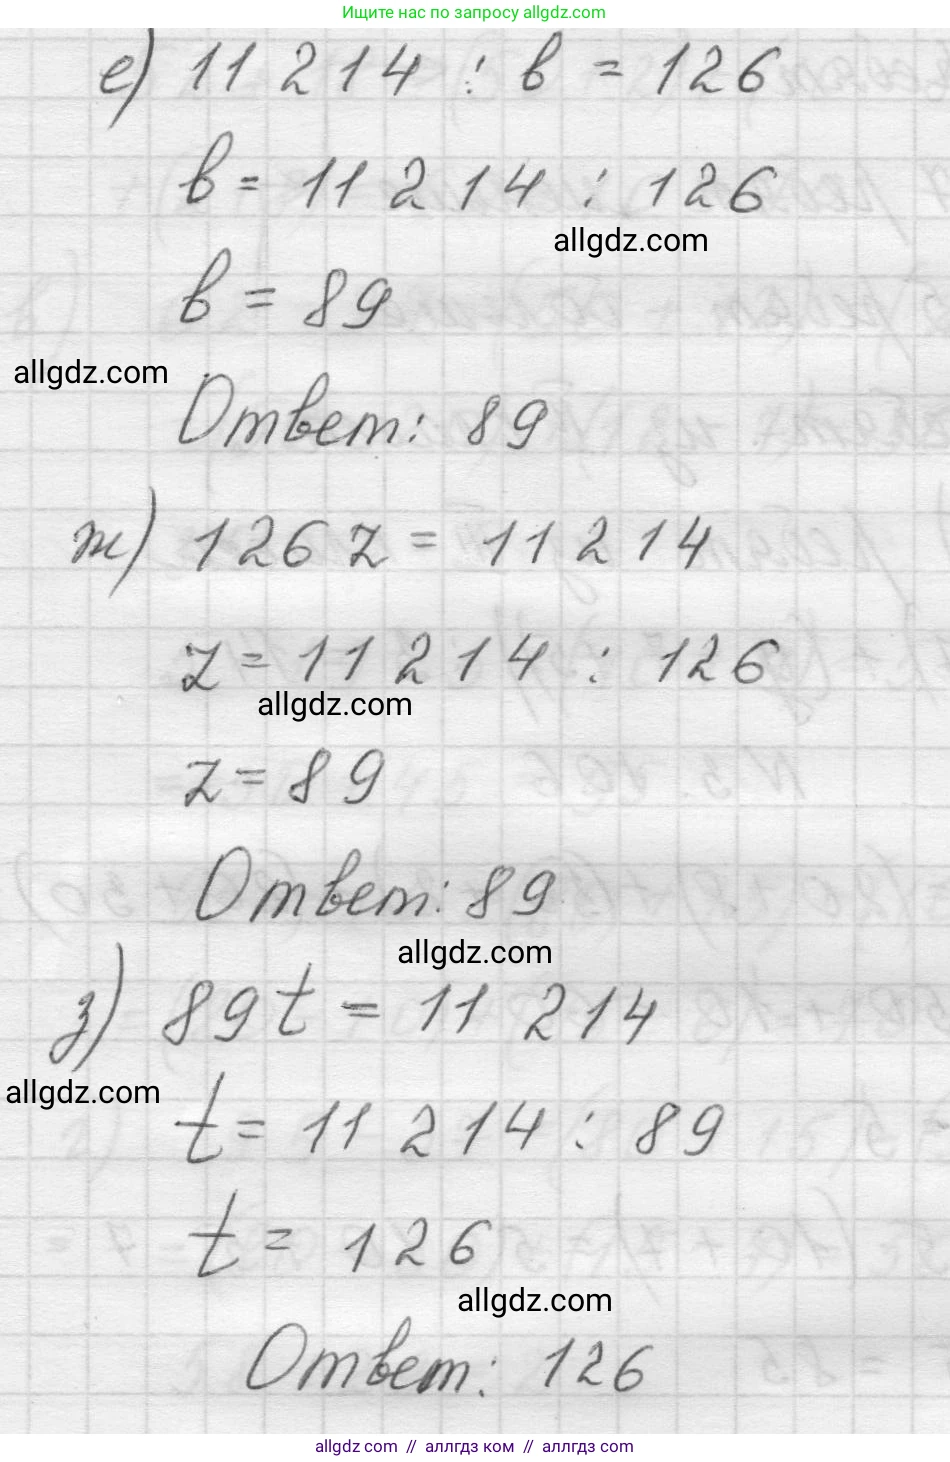 Ищите нас по запросу allgdz.com
е) 11 214 : в = 126
в = 11 214 : 126
allgdz.com
в = 89
allgdz.com
Ответ: 89
ж) 126 z = 11 214
z = 11 214 : 126
allgdz.com
z = 89
Ответ: 89
allgdz.com
з) 89 t = 11 214
allgdz.com
t = 11 214 : 89
t = 126
allgdz.com
Ответ: 126
allgdz.com // аллгдз ком // аллгдз.com